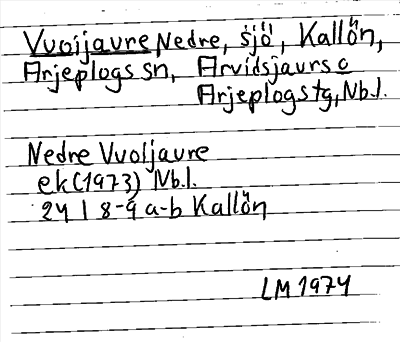 Vuoijaure, Nedre, sjö, Kallön,
Arjeplogs sn, Arvidsjaurs o
Arjeplogs tg, Nb.l.
Nedre Vuoljaure
ek (1973) Nb.l.
24 I 8-9 a-b Kallön
LM 1974